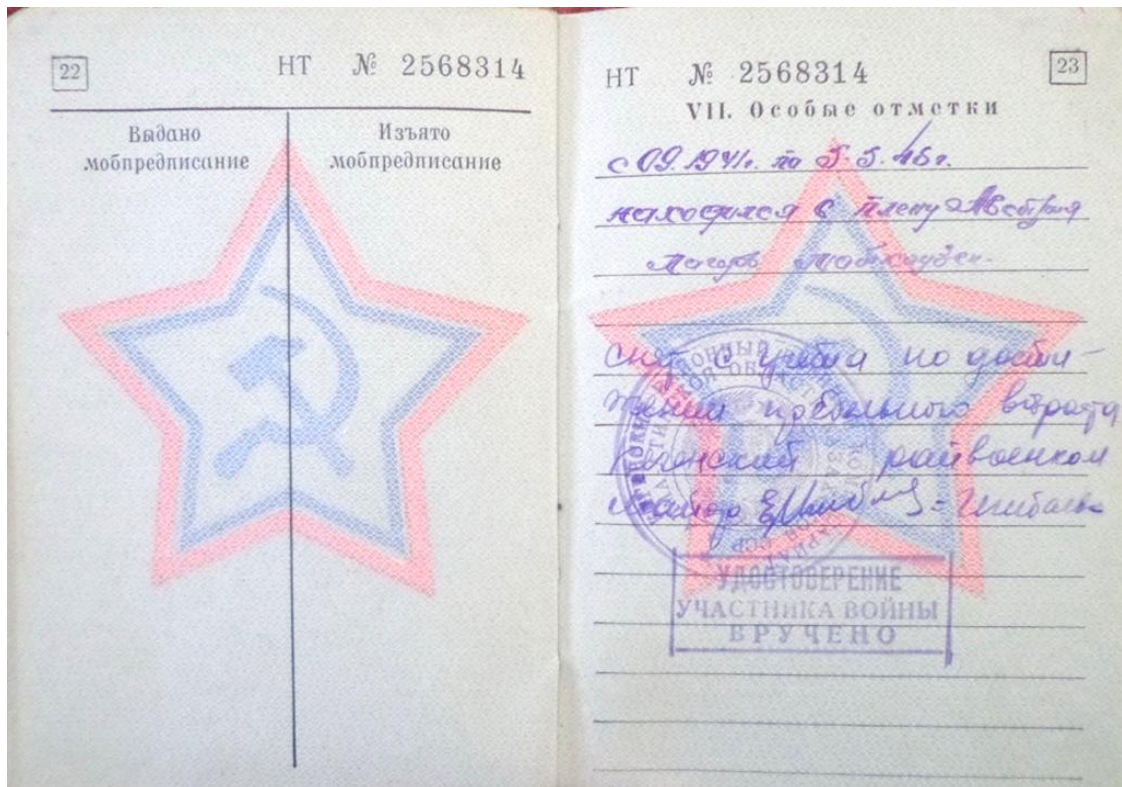 22
НТ № 2568314
Выдано
мобпредписание
Изъято
мобпредписание
НТ № 2568314
23
VII. Особые отметки
с 09.1941г. по 5.5.45г.
находился в плену Австрия
лагерь
снят с учёта по дости-
жении предельного возраста
райвоенком
майор
УДОСТОВЕРЕНИЕ
УЧАСТНИКА ВОЙНЫ
ВРУЧЕНО